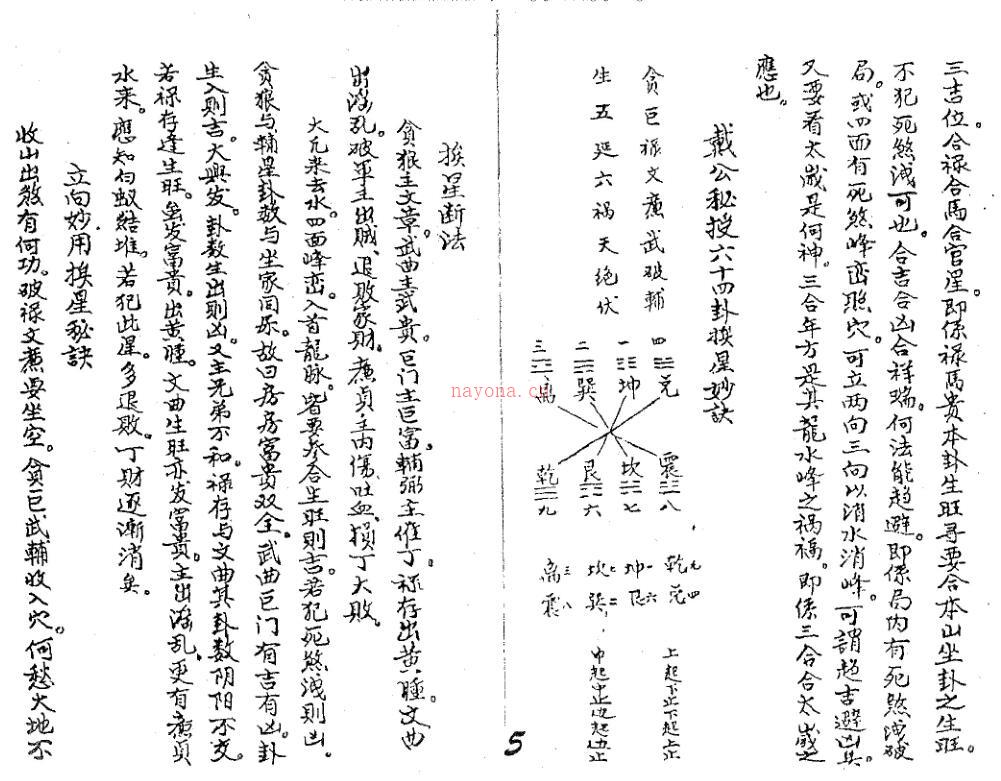 三吉位合禄合馬合官星即係禄馬贵本卦生旺寻要合本山坐卦之生旺。
不犯死煞洩可也。合吉合凶合祥瑞。何法能趋避。即係局内有死煞洩破
局。或四面有死煞峰峦照穴。可立两向三向以消水消峰。可謂趋吉避凶其
又要看太歲是何神。三合年方是其龍水峰之祸福。即係三合合太歲之
應也。
戴公秘授六十四卦挨星妙訣
貪巨禄文廉武破輔
生五延六祸天绝伏
四 兑 一 坤 二 巽 三 离
震 八 坎 七 艮 六 乾 九
乾九 兑四
坤一 艮六
坎七 巽二
离三 震八
上起下止下起上止
中起中止边起边止
5
挨星断法
貪狼主文章。武曲主武贵。巨门主巨富。輔弼主催丁。禄存出黄腫。文曲
出淫乱。破军主出贼、退败家财。廉貞主内傷、吐血、损丁大败。
大凡来去水。四面峰峦。入首龍脉。皆要参合生旺則吉。若犯死煞洩則凶。
貪狼与輔星卦数与坐家同宗。故曰房房富贵双全。武曲巨门有吉有凶。卦
生入則吉。大興发。卦数生出則凶。又主兄弟不和。禄存与文曲其卦数阴阳不交。
若禄存逢生旺。虽发富贵。出黄腫。文曲生旺亦发富贵。主出淫乱。更有廉貞
水来。應知白蚁結堆。若犯此星。多退败。丁财逐漸消矣。
立向妙用挨星秘訣
收山出煞有何功。破禄文廉要坐空。貪巨武輔收入穴。何愁大地不